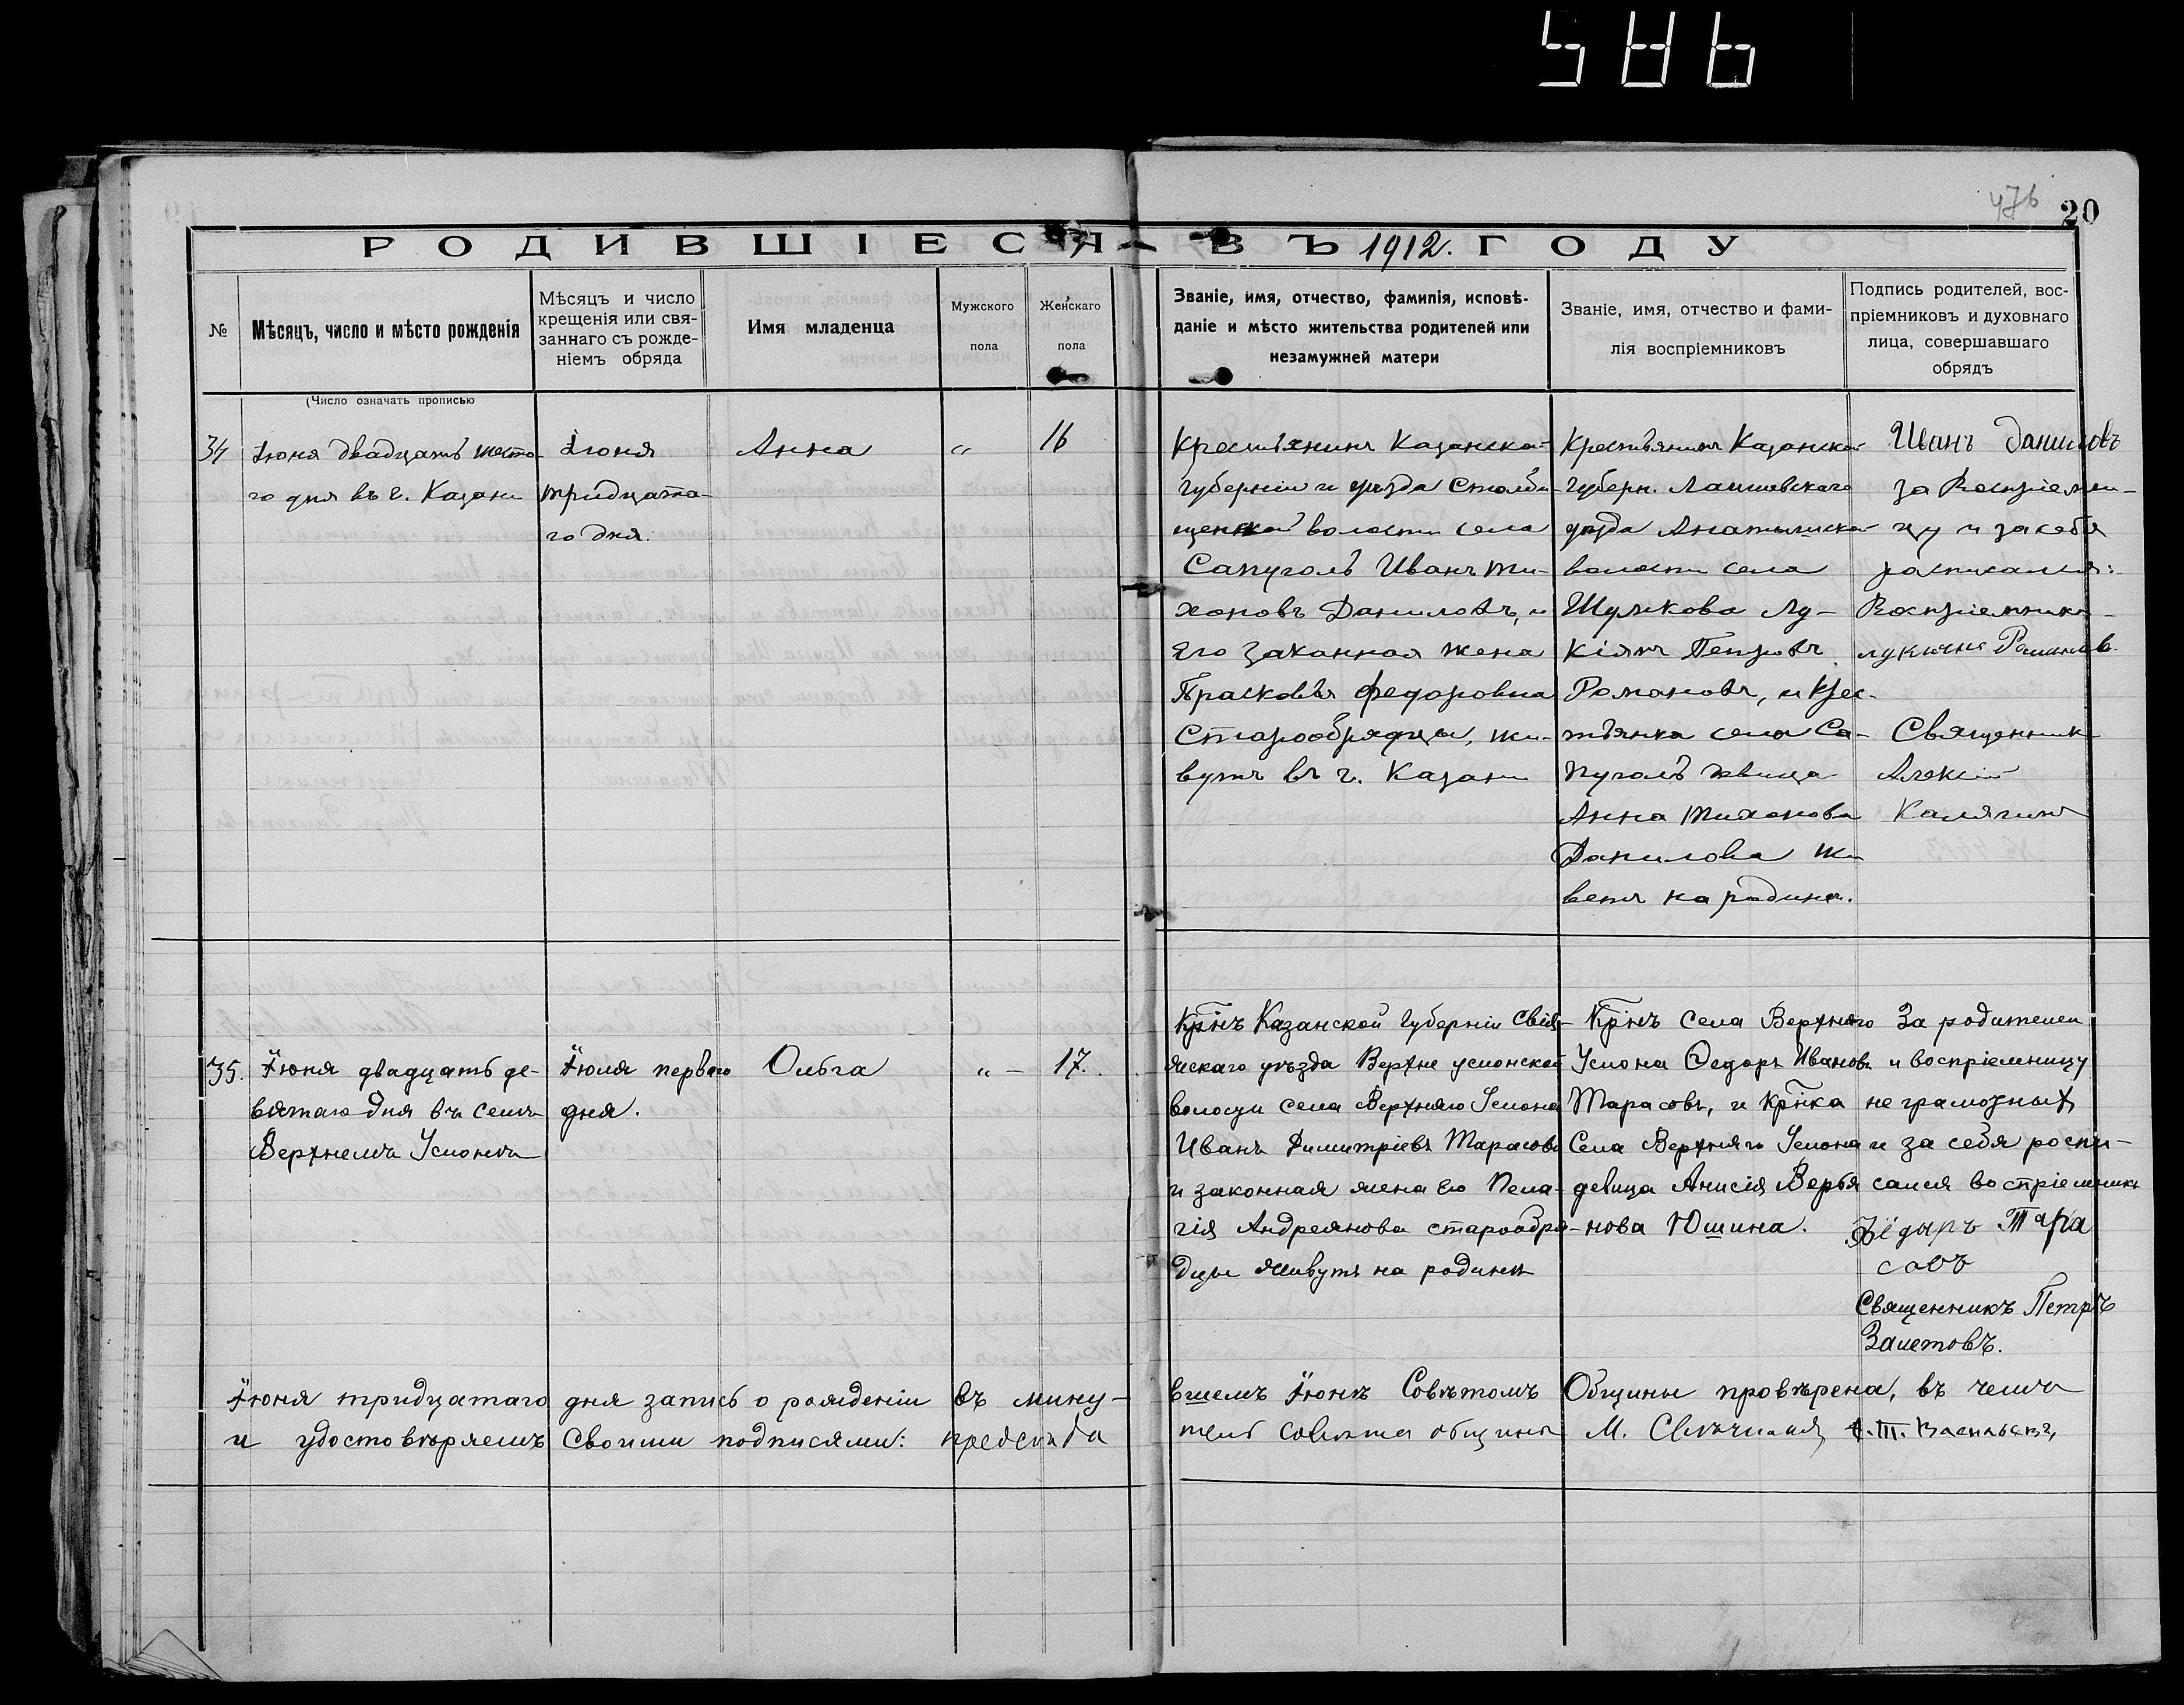 586
476
20
РОДИВШІЕСЯ ВЪ 1912. ГОДУ
№
Мѣсяцъ, число и мѣсто рожденія
Мѣсяцъ и число
крещенія или свя-
заннаго съ рожде-
ніемъ обряда
Имя младенца
Мужского
пола
Женскаго
пола
Званіе, имя, отчество, фамилія, исповѣ-
даніе и мѣсто жительства родителей или
незамужней матери
Званіе, имя, отчество и фами-
лія воспріемниковъ
Подпись родителей, вос-
пріемниковъ и духовнаго
лица, совершавшаго
обрядъ
(Число означать прописью
34
Іюня двадцать шесто-
го дня въ г. Казани
Іюня
тридцата-
го дня.
Анна
"
16
Крестьянинъ Казанской
губерніи и уѣзда Столби-
щенской волости села
Сапуголь Иванъ Ти-
хоновъ Даниловъ, и
его законная жена
Прасковья Федоровна
Старообрядцы, жи-
вутъ въ г. Казани
Крестьянинъ Казанской
Губерн. Лаишевскаго
уѣзда Анатышской
волости села
Шумкова Лу-
кіянъ Петровъ
Романовъ, и крес-
тьянка села Са-
пуголь девица
Анна Тихонова
Данилова жи
ветъ на родинѣ.
Иванъ Даниловъ
за Воспріемни-
цу и за себя
росписался:
Воспріемникъ
лукіянъ Романов.
Священникъ
Алексій
Калягинъ
35.
Іюня двадцать де-
вятаго дня въ селѣ
Верхнемъ Услонѣ
Іюля перваго
дня.
Ольга
" -
17.
Кр̃нъ Казанской Губерніи Свія-
жскаго уѣзда Верхне услонской
волости села Верхняго Услона
Иванъ Димитріевъ Тарасовъ
и законная жена его Пела-
гія Андреянова старообря-
дцы живутъ на родинѣ
Кр̃нъ Села Верхняго
Услона Ѳедоръ Ивановъ
Тарасовъ, и Кр̃нка
Села Верхняго Услона
девица Анисія Верья
нова Юшина.
За родителей
и воспріемницу
не грамотных
и за себя роспи-
сался воспріемникъ
Ѳёдыръ Тара
совъ
Священникъ Петръ
Залетовъ.
Іюня тридцатаго дня запись о рожденіи въ мину-
вшемъ Іюнѣ Совѣтомъ Общины провѣрена, въ чемъ
и удостовѣряемъ Своими подписями: председа
тель совѣта общины М.